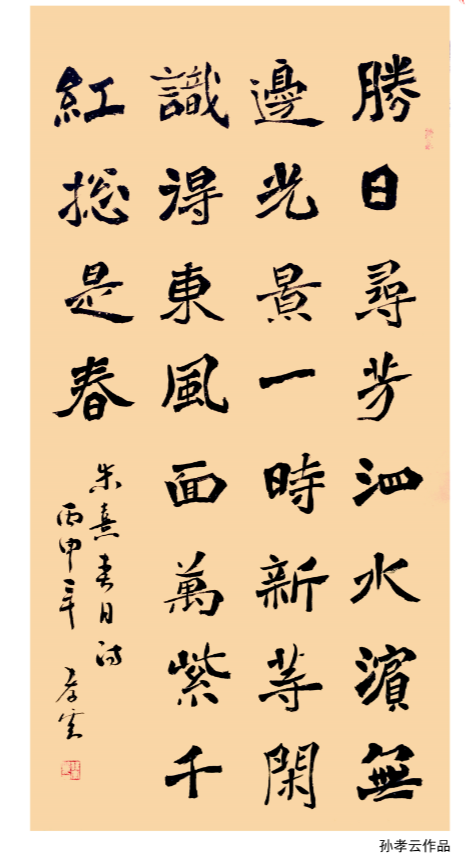 勝日尋芳泗水濱無
邊光景一時新等閑
識得東風面萬紫千
紅捴是春
朱熹春日詩
丙申年 孝雲
孙孝云作品